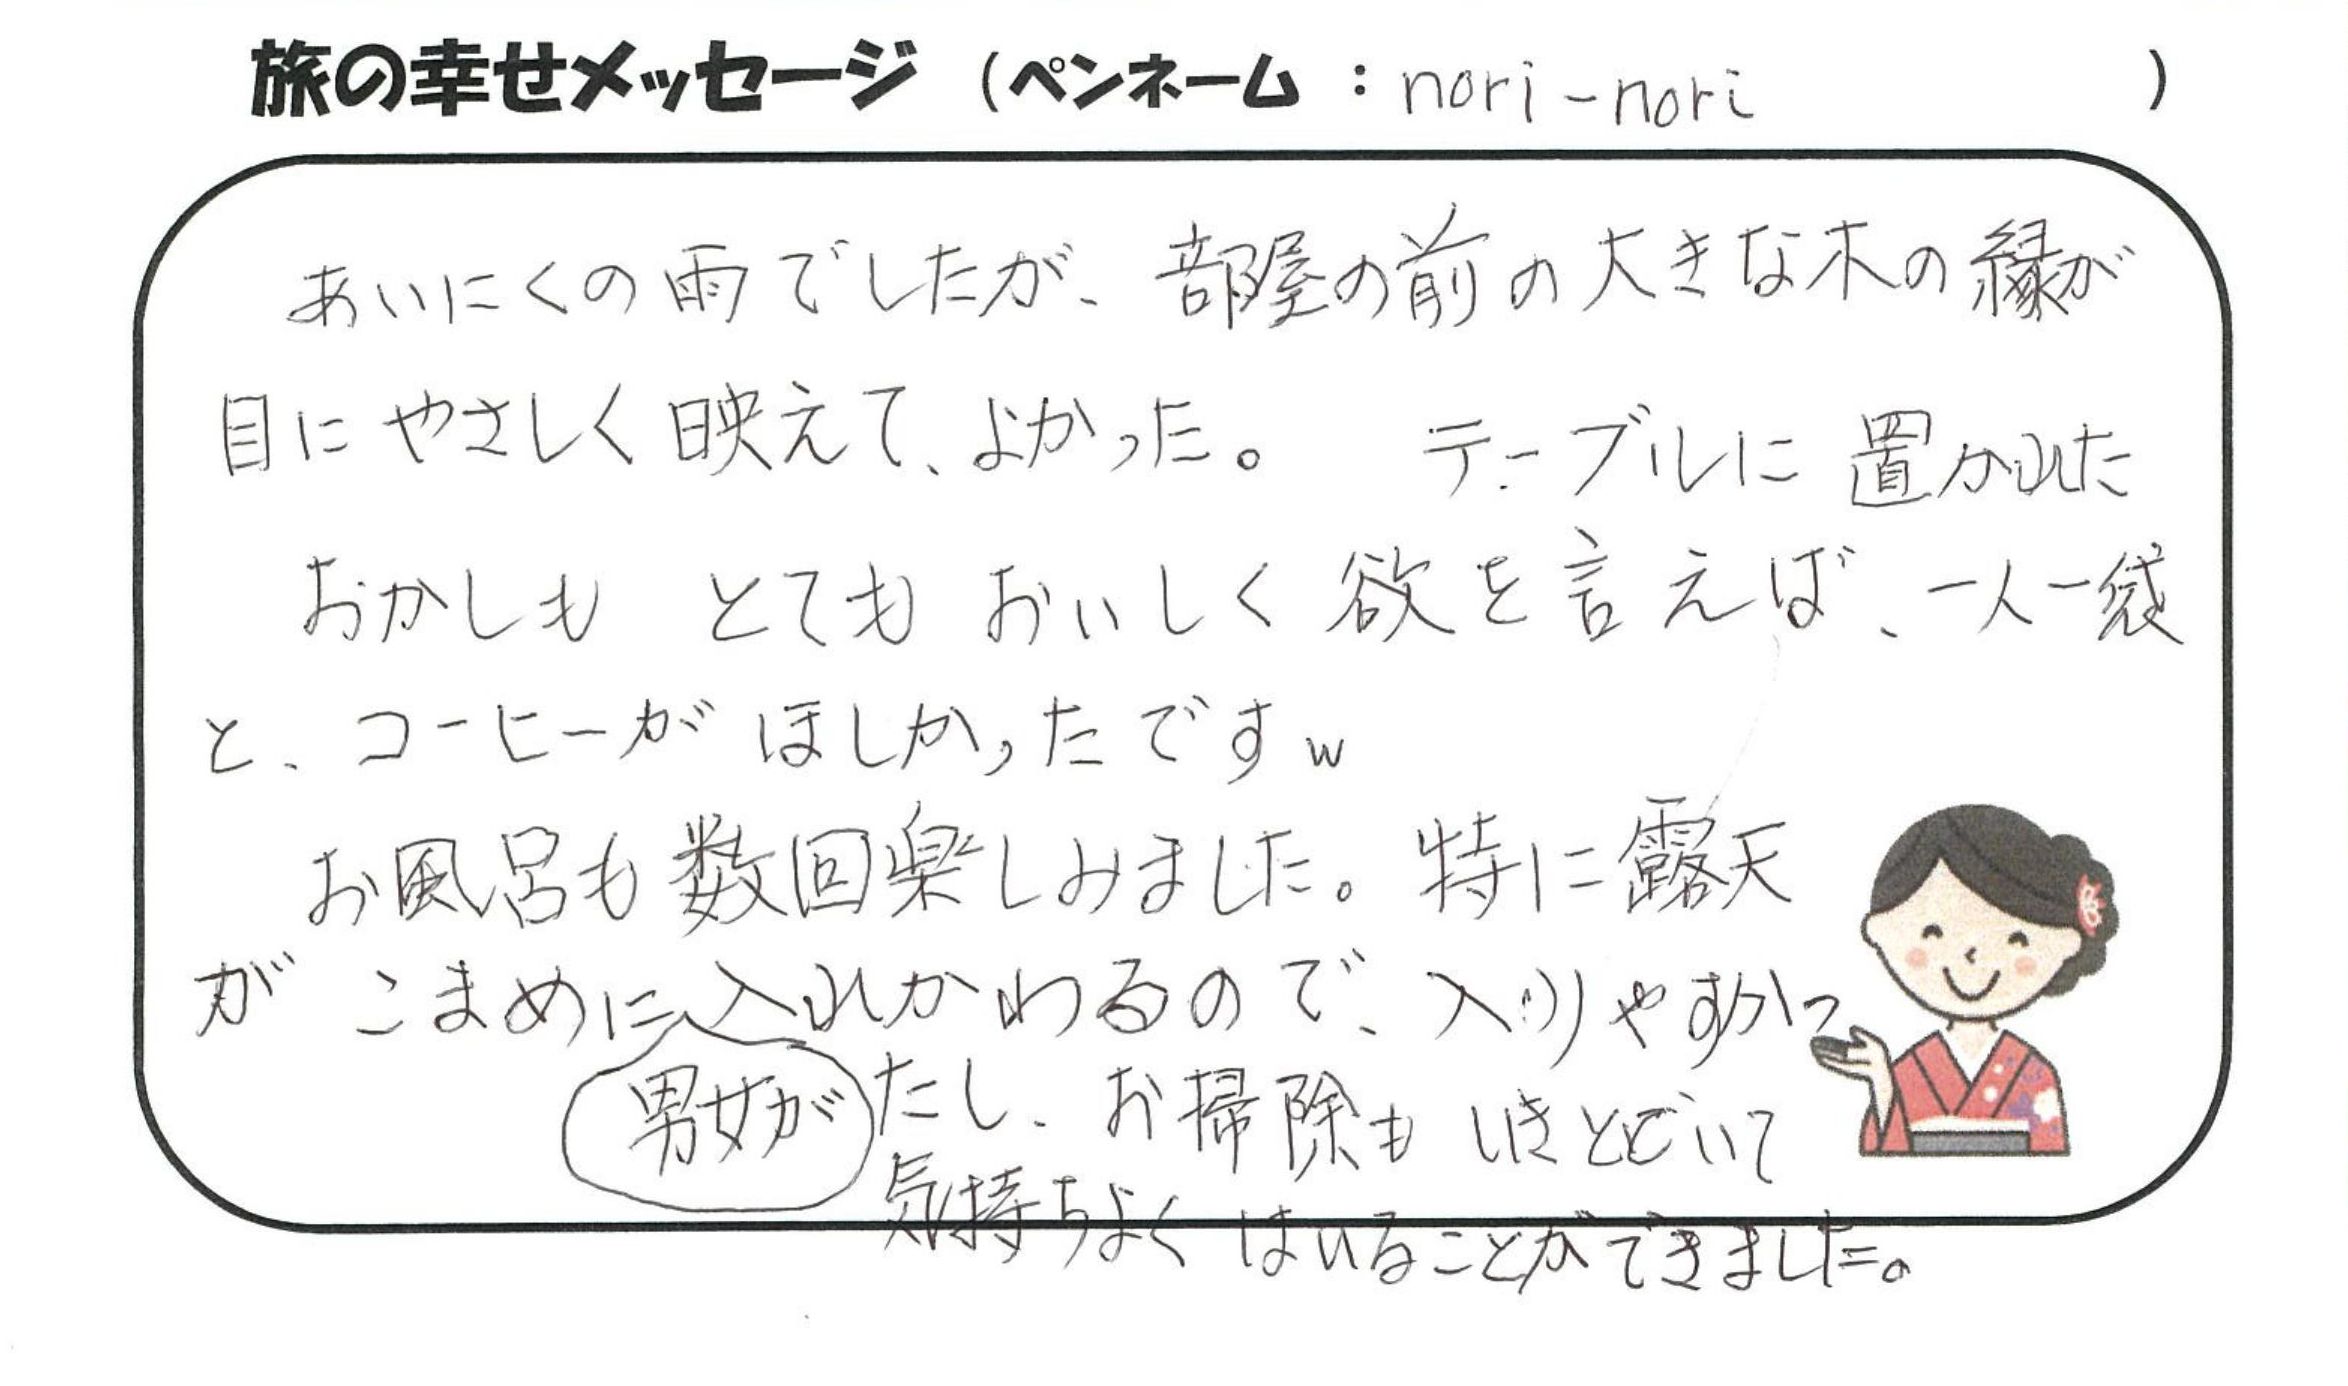 旅の幸せメッセージ (ペンネーム : nori-nori )
あいにくの雨でしたが、部屋の前の大きな木の緑が
目にやさしく映えて、よかった。 テーブルに置かれた
おかしも とても おいしく 欲を言えば、一人一袋
と、コーヒーが ほしかったですw
お風呂も数回楽しみました。特に露天
が こまめに入れかわるので、入りやすかっ
男女が
たし、お掃除も いきとどいて
気持ちよく はいることができました。